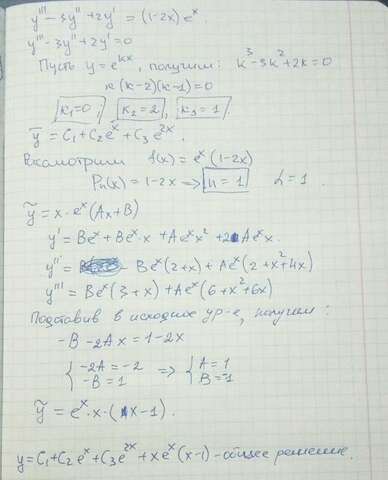 y''' - 3y'' + 2y' = (1-2x)eˣ.
y''' - 3y'' + 2y' = 0
Пусть y = eᵏˣ, получим: k³ - 3k² + 2k = 0
k(k-2)(k-1) = 0
k₁=0, k₂=2, k₃=1.
ỹ = C₁ + C₂eˣ + C₃e²ˣ.
Рассмотрим f(x) = eˣ(1-2x)
Pₙ(x) = 1-2x → n=1 α=1.
ỹ = x·eˣ(Ax+B)
y' = Beˣ + Beˣ·x + Aeˣx² + 2Aeˣx.
y'' = Beˣ(2+x) + Aeˣ(2+x²+4x)
y''' = Beˣ(3+x) + Aeˣ(6+x²+6x)
Подставив в исходное ур-е, получим:
-B - 2Ax = 1-2x
{ -2A = -2 -B = 1 => { A=1 B=-1
ỹ = eˣ·x·(x-1).
y = C₁ + C₂eˣ + C₃e²ˣ + xeˣ(x-1) - общее решение.